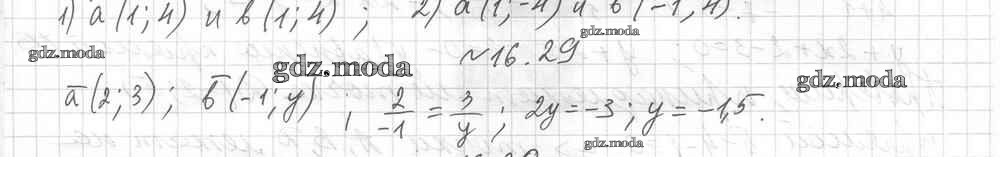 1) a̅ (1; 4) и b̅ (1; 4) ; 2) a̅ (1; -4) и b̅ (-1, 4).
gdz.moda
gdz.moda
№16.29
gdz.moda
gdz.moda
a̅ (2; 3) ; b̅ (-1; y) ; 2/-1 = 3/y ; 2y = -3 ; y = -1,5.
gdz.moda